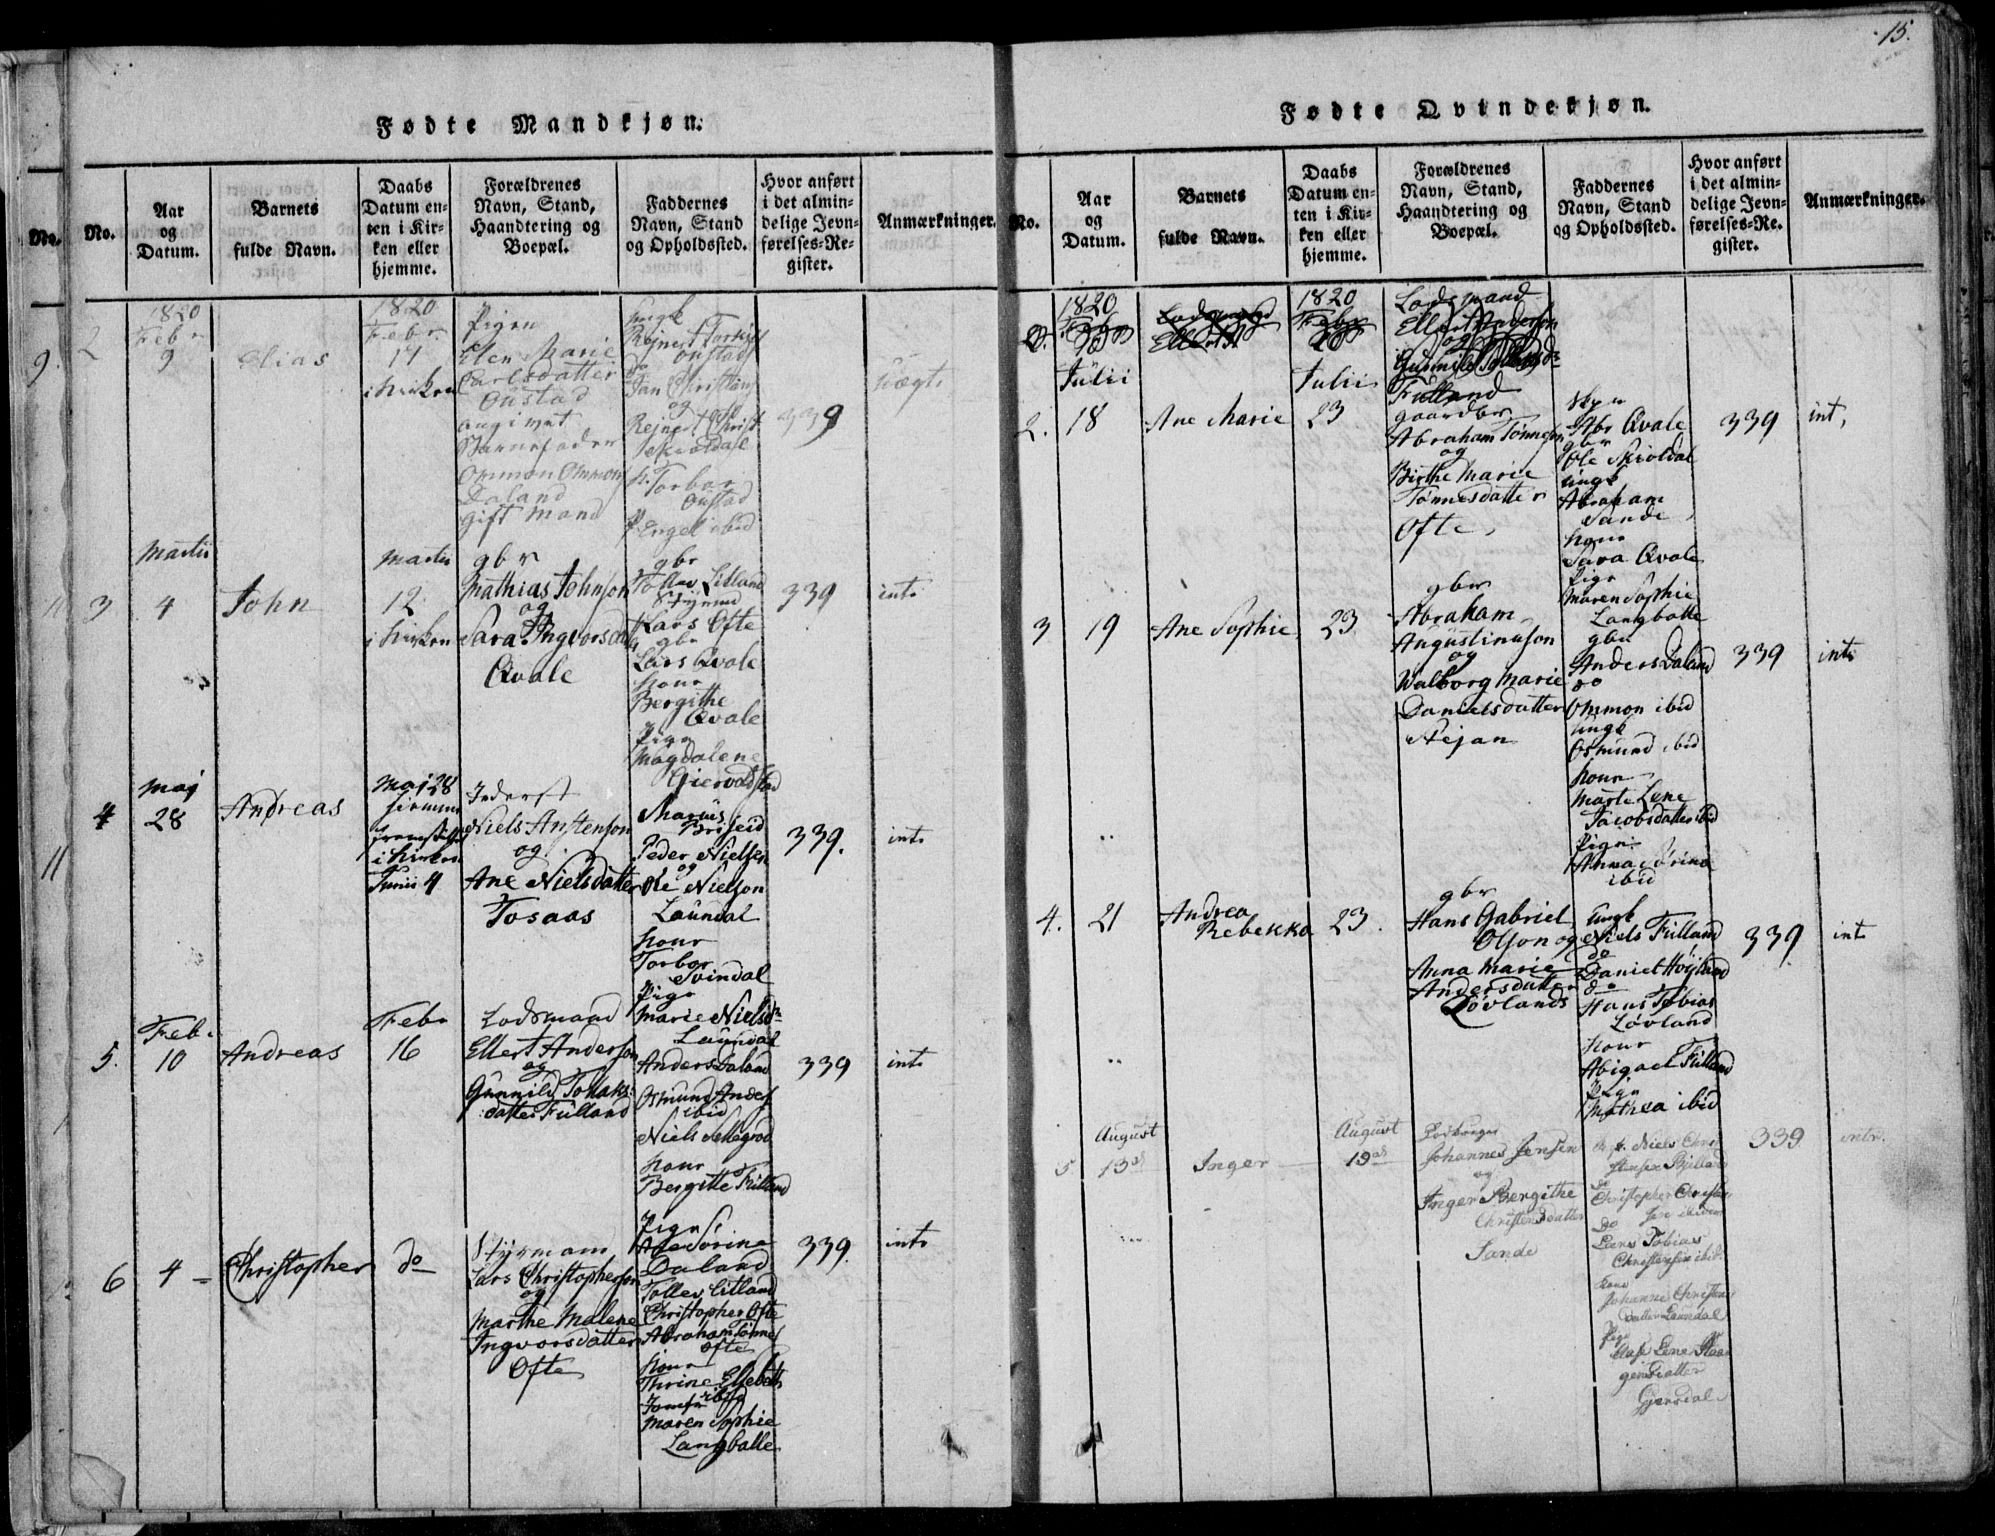 15.
Fødte Mandkjøn.
No.
No.
Aar
og
Datum.
Barnets
fulde Navn.
Daabs
Datum en-
ten i Kir-
ken eller
hjemme.
Forældrenes
Navn, Stand,
Haandtering og
Boepæl.
Faddernes
Navn, Stand
og Opholdssted.
Hvor anført
i det almin-
delige Jevn-
førelses-Re-
gister.
Anmærkninger.
9.
11
11
2
1820
Febr
9
Elias
1820
Febr
17
i kirken
Pigen
Elen Marie
Carlsdatter
Oustad
angivet
Barnefader
Ommon Ommons
Daland
Gift Mand
ungk
Oustad
do
Jan Christians
og
Rejnert Christ
Skioldal
k. Torbor
Oustad
P. Engel ibid
339
uægte
3
Martii
4
John
Martii
12
i kirken
gbr
Mathias Johnson
og
Sara Ingvorsdatt
Qvale
gbr
Tollev Litland
Styrmd
Lars Ofte
gbr
Lars Qvale
kone
Bergithe
Qvale
Pige
Magdalene
Giervoldstad
339
int.
4
Maj
28
Andreas
Maj 28
hiemme
fremstillet
i kirken
Junii 4
Inderst
Niels Anstenson
og
Ane Nielsdatter
Tosaas
Marius
Briseid
Peder Nielsen
og
Ole Nielson
Laundal
kone
Torbor
Svindal
Pige
Marie Nielsdr
Laundal
339.
int.
5.
Feb.
10
Andreas
Febr
16
Lodsmand
Ellert Anderson
og
Gunnild Tobias-
datter Fuland
Anders Daland
Osmund Anders
ibid
Niels Sellegrod
kone
Bergitte Fuland
Pigen
Ane Sorine
Daland
339
int.
6
4
Christopher
do
Styrmann
Lars Christopherson
og
Marthe Malene
Ingvorsdatter
Ofte
Tollev Litland
Christopher Ofte
Abraham Tønnes
Ofte
kone
Thrine Elsebeth
ibid
Jomfr
Maren Sophie
Langballe
339.
int.
Fødte Qvindekjøn.
No.
Aar
og
Datum.
Barnets
fulde Navn.
Daabs
Datum en-
ten i Kir-
ken eller
hjemme.
Forældrenes
Navn, Stand,
Haandtering og
Boepæl.
Faddernes
Navn, Stand
og Opholdssted.
Hvor anført
i det almin-
delige Jevn-
førelses-Re-
gister.
Anmærkninger.
1820
1820
Lodsmand
Ellert Anderson
og
Fulland
2.
Julii
18
Ane Marie
Julii
23
gaardbr
Abraham Tønneson
og
Birthe Marie
Tønnesdatter
Ofte
Abr Qvale
gbr
Ole Skioldal
ungk
Abraham
Sande
kone
Sara Qvale
Pige
Maren Sophie
Langballe
339
int.
3
19
Ane Sophie
23
gbr
Abraham
Augustinuson
og
Walborg Marie
Danielsdatter
Nejan
gbr
Anders Daland
do
Ommon ibid
ungk
Osmund ibid
kone
Marte Lene
Jacobsdatter ibid
Pige
Anna Sørine
ibid
339
int.
4.
21
Andrea
Rebekka
23.
gbr
Hans Gabriel
Olson og
Anna Marie
Andersdatter
Løvlands
Ungk
Niels Fulland
do
Daniel Højland
do
Hans Tobias
Løvland
kone
Abigael Fulland
Pige
Mathea ibid
339
int.
5
August
13de
Inger
August
13de
Johannes Jensen
og
Inger Bergithe
Christensdatter
Sande
Niels Chri
stensen
do
Christopher Christen
sen ibidem
do
Lars Tobias
Christensen ibid.
kone
Johanne Christens
datter Laundal
Pige
Aase Lene Aan
gensdatter
339
intr.